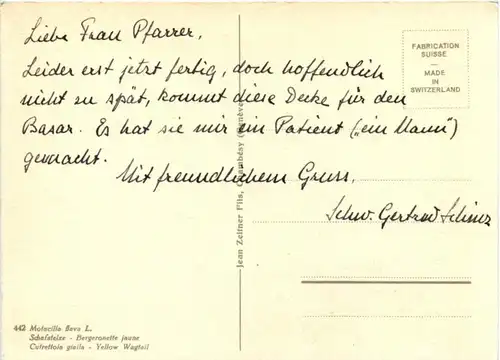 Liebe Frau Pfarrer,
Leider erst jetzt fertig, doch hoffendlich
nicht zu spät, kommt diese Decke für den
Basar. Es hat sie mir ein Patient ("ein Mann")
gemacht.
Mit freundlichem Gruss,
Schw. Gertrud Schinz
FABRICATION
SUISSE
—
MADE
IN
SWITZERLAND
Jean Zeltner Fils, Chambésy (Genève)
442 Motacilla flava L.
Schafstelze - Bergeronette jaune
Cutrettola gialla - Yellow Wagtail